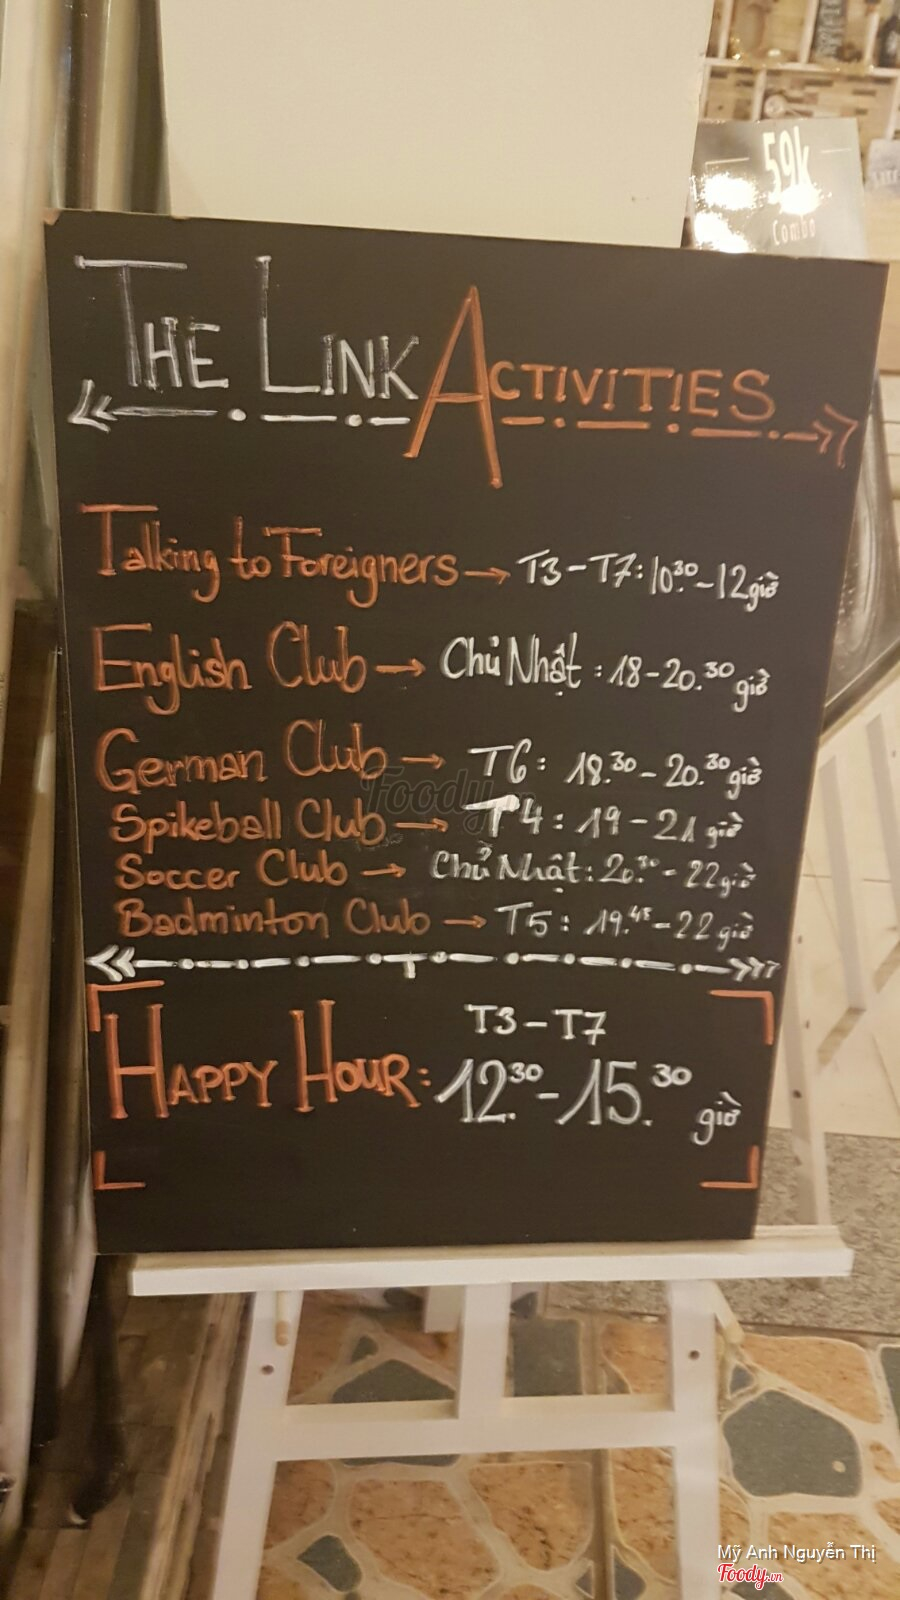 59k
Combo
THE LINK ACTIVITIES
Talking to Foreigners → T3-T7: 10.30-12 giờ
English Club → Chủ Nhật : 18-20.30 giờ
German Club → T6: 18.30-20.30 giờ
Spikeball Club → T4: 19-21 giờ
Soccer Club → Chủ Nhật: 20.30-22 giờ
Badminton Club → T5: 19.45-22 giờ
T3-T7
HAPPY HOUR: 12.30-15.30 giờ
Foody.vn
Mỹ Anh Nguyễn Thị
Foody.vn